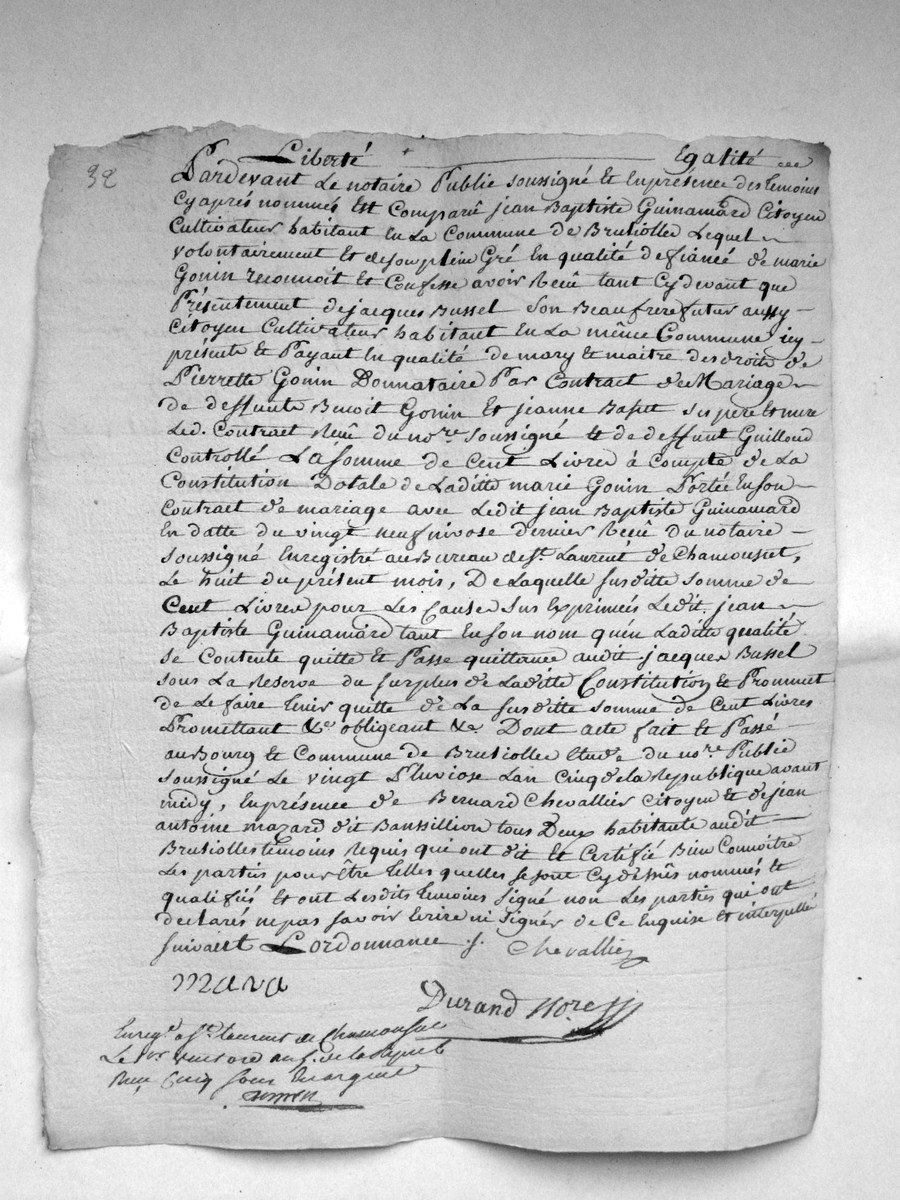 32
Liberté Egalité
Pardevant Le notaire Public soussigné Et Enprésence des temoins
Cyaprés nommés Est Comparû jean Baptiste Guinamard Citoyen
Cultivateur habitant En La Commune de Brusiolles Lequel
volontairement Et desonplein Gré En qualité defiancé de marie
Gonin reconnoit Et Confesse avoir Reçû tant Cydevant que
Présentement dejacques Bussel Son Beaufrerefutur aussy
Citoyen Cultivateur habitant En La même Commune icy
présente Et Payant En qualité de mary & maitre des droits de
Pierrette Gonin Donnataire Par Contract de Mariage
de deffunts Benoit Gonin Et jeanne Basset ses pere Et mere
Led. Contract Reçû du no.re soussigné & de deffunt Guilloud
Controllé La somme de Cent Livres à Compte de La
Constitution Dotale de Laditte marie Gonin Portée Enson
Contract de mariage avec Ledit jean Baptiste Guinamard
En datte du vingt neuf nivose dernier Reçû du notaire
soussigné Enregistré au Bureau de S.t Laurent de Chamousset,
Le huit du présent mois, De Laquelle susditte somme de
Cent Livres pour Les Causes sus Exprimées Ledit jean
Baptiste Guinamard tant Enson nom qu'en Laditte qualité
se Contente quitte Et Passe quittance audit jacques Bussel
sous La Reserve du surplus de Laditte Constitution & Prommet
de Le faire tenir quitte de La susditte somme de Cent Livres
Promettant &c obligeant &c Dont acte fait Et Passé
au Bourg & Commune de Brusiolles Etude du no.re Public
soussigné Le vingt Pluviose Lan Cinq de la Republique avant
midy, Enprésence de Bernard Chevallier Citoyen & de jean
antoine mazard dit Banssillion tous Deux habitants audit
Brusiolles temoins Requis qui ont dit Et Certifié Bien Connoitre
Les parties pour être telles quelles se sont Cydessus nommés &
qualifiés Et ont Lesdits temoins signé non Les parties qui ont
declarés ne pas savoir Ecrire ni signer de Ce Enquise Et interpellé
suivant Lordonnance
Chevallier
maza
Durand No.re
Enreg.t a S.t Laurent de Chamousset
Le vent ose an de la Repub
Reçu Cinq sous